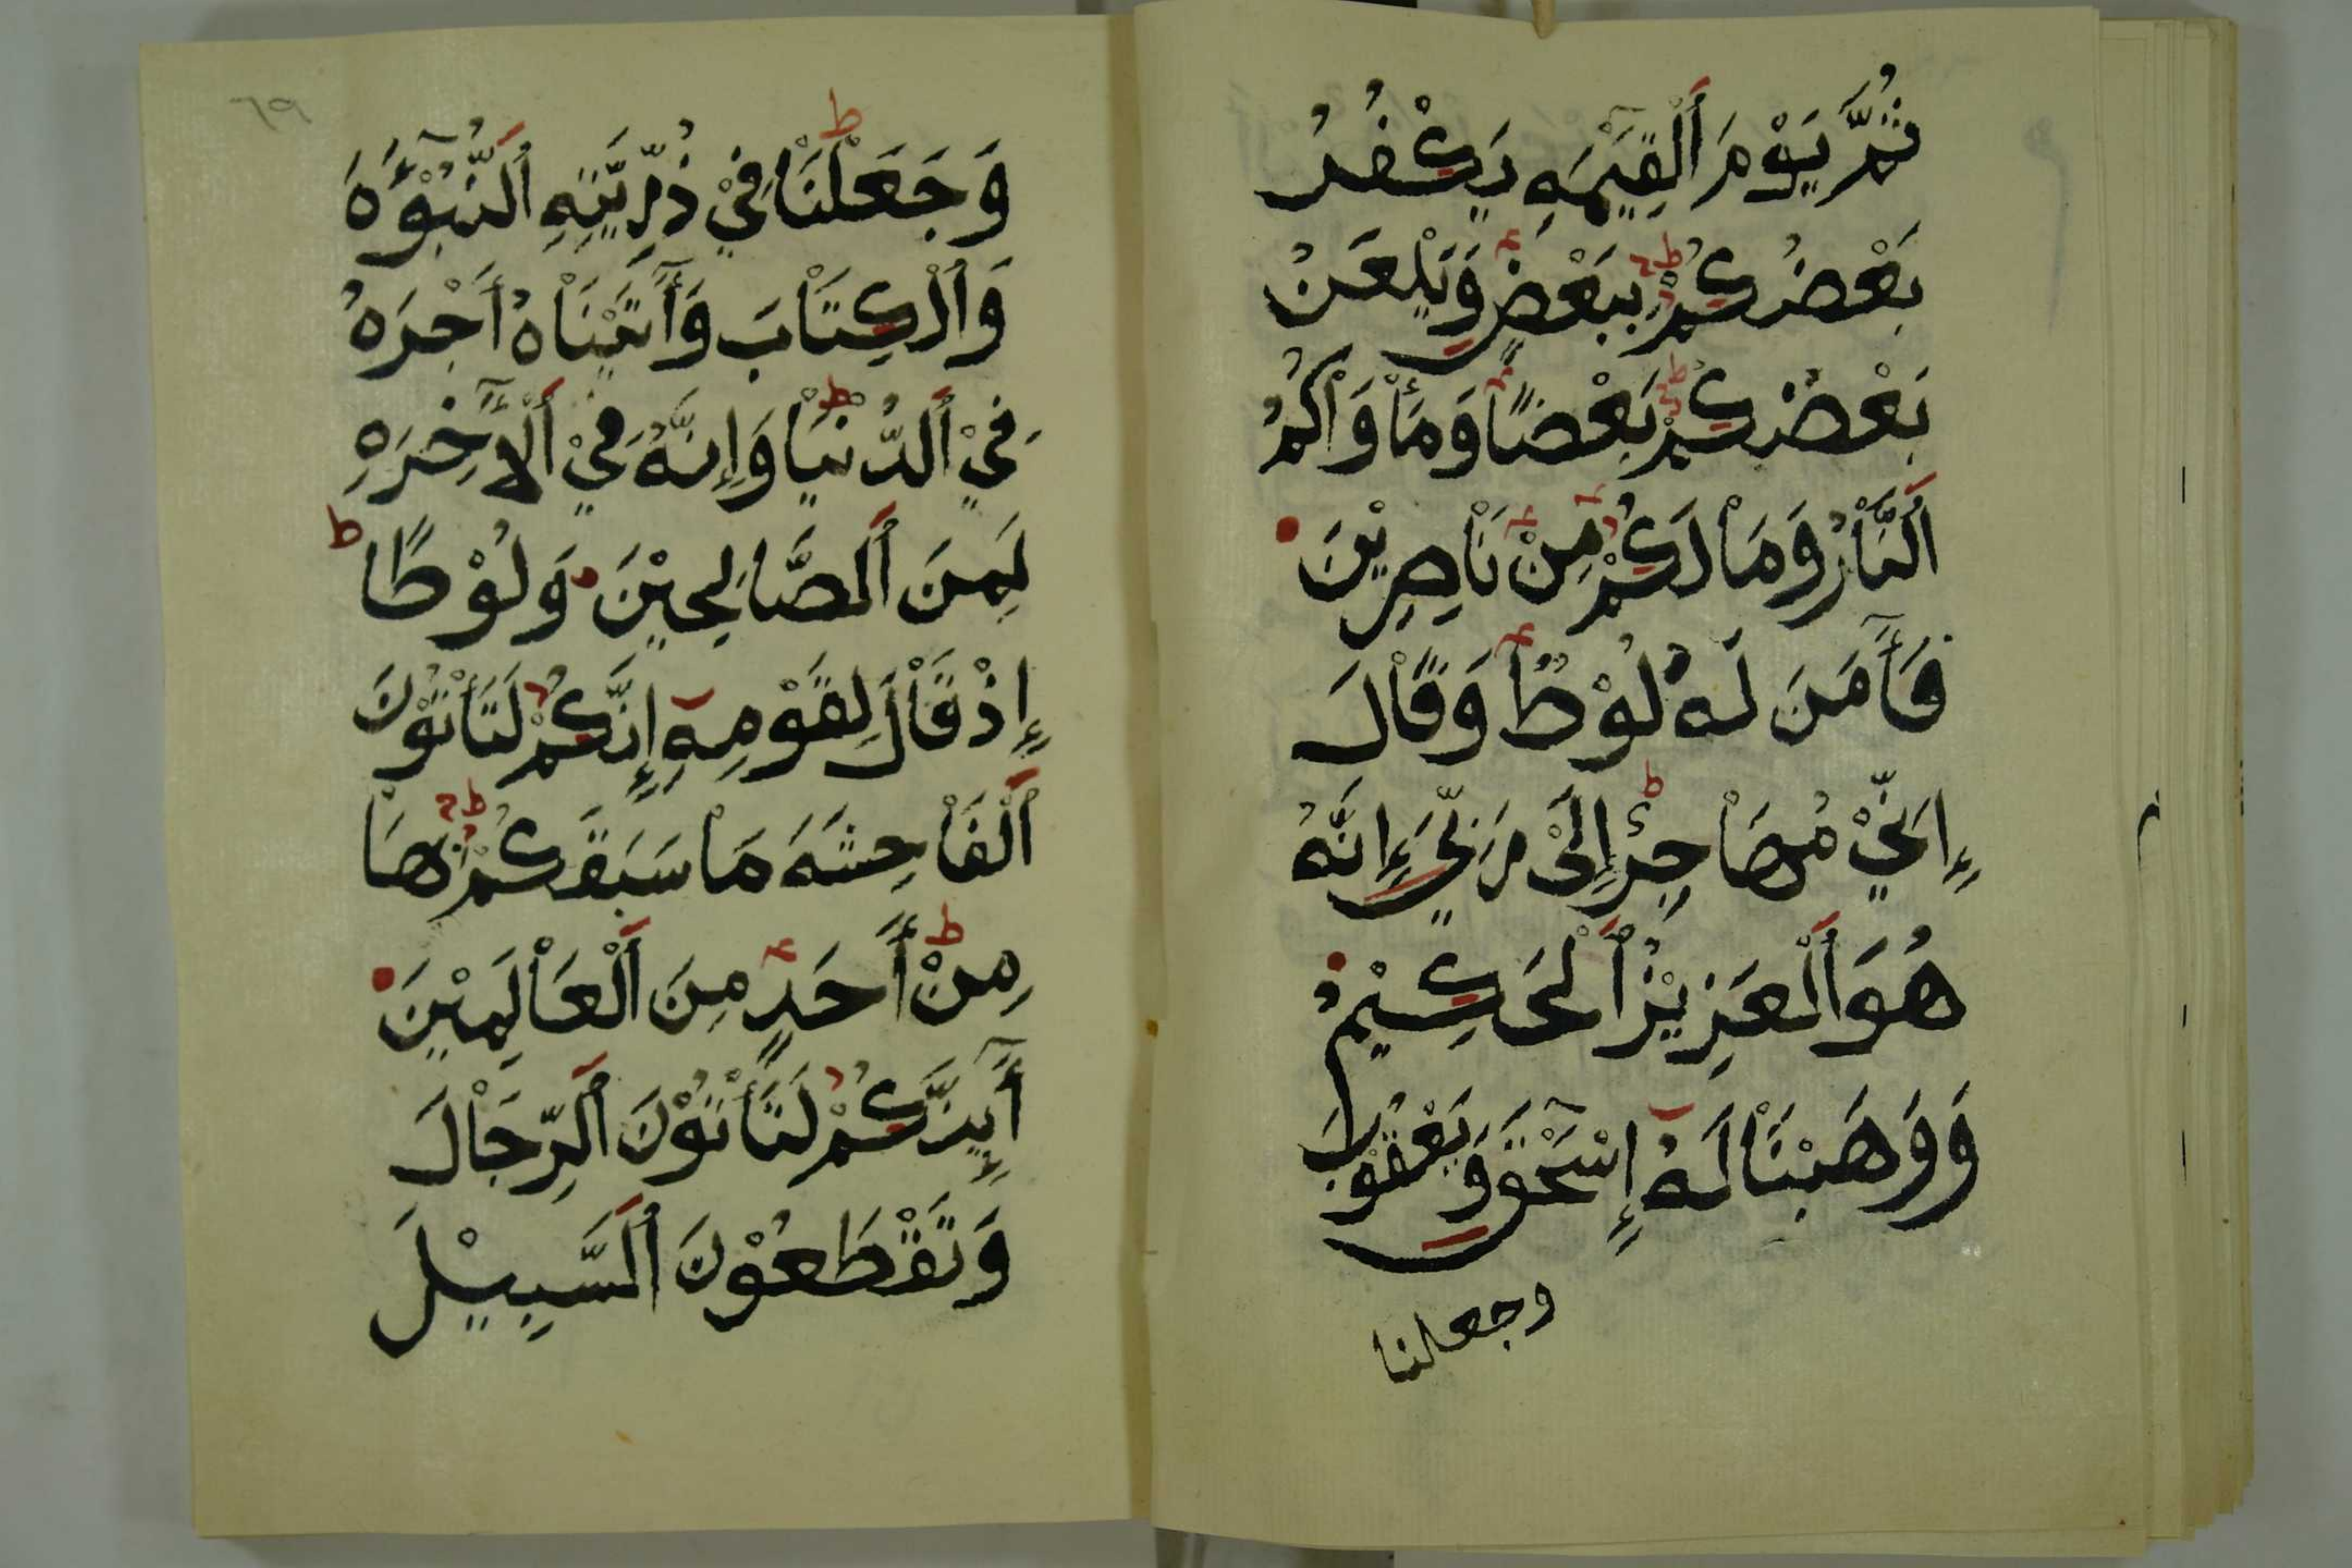 ثُمَّ يَوْمَ ٱلْقِيَٰمَةِ يَكْفُرُ
بَعْضُكُمْ بِبَعْضٍ وَيَلْعَنُ
بَعْضُكُمْ بَعْضًا وَمَأْوَاكُمُ
ٱلنَّارُ وَمَا لَكُمْ مِنْ نَاصِرِيْنَ
فَـَٔامَنَ لَهُ لُوْطٌ وَقَالَ
إِنِّيْ مُهَاجِرٌ إِلَىٰ رَبِّيْ إِنَّهُ
هُوَ ٱلْعَزِيْزُ ٱلْحَكِيْمُ
وَوَهَبْنَا لَهُ إِسْحَٰقَ وَيَعْقُوْبَ
وجعلنا
٦٩
وَجَعَلْنَا فِيْ ذُرِّيَّتِهِ ٱلنُّبُوْٓءَةَ
وَٱلْكِتَابَ وَءَاتَيْنَاهُ أَجْرَهُ
فِيْ ٱلدُّنْيَا وَإِنَّهُ فِيْ ٱلْأٓخِرَةِ
لَمِنَ ٱلصَّالِحِيْنَ وَلُوْطًا
إِذْ قَالَ لِقَوْمِهِٓ إِنَّكُمْ لَتَأْتُوْنَ
ٱلْفَاحِشَةَ مَا سَبَقَكُمْ بِهَا
مِنْ أَحَدٍ مِنَ ٱلْعَالَمِيْنَ
أَٓئِنَّكُمْ لَتَأْتُوْنَ ٱلرِّجَالَ
وَتَقْطَعُوْنَ ٱلسَّبِيْلَ